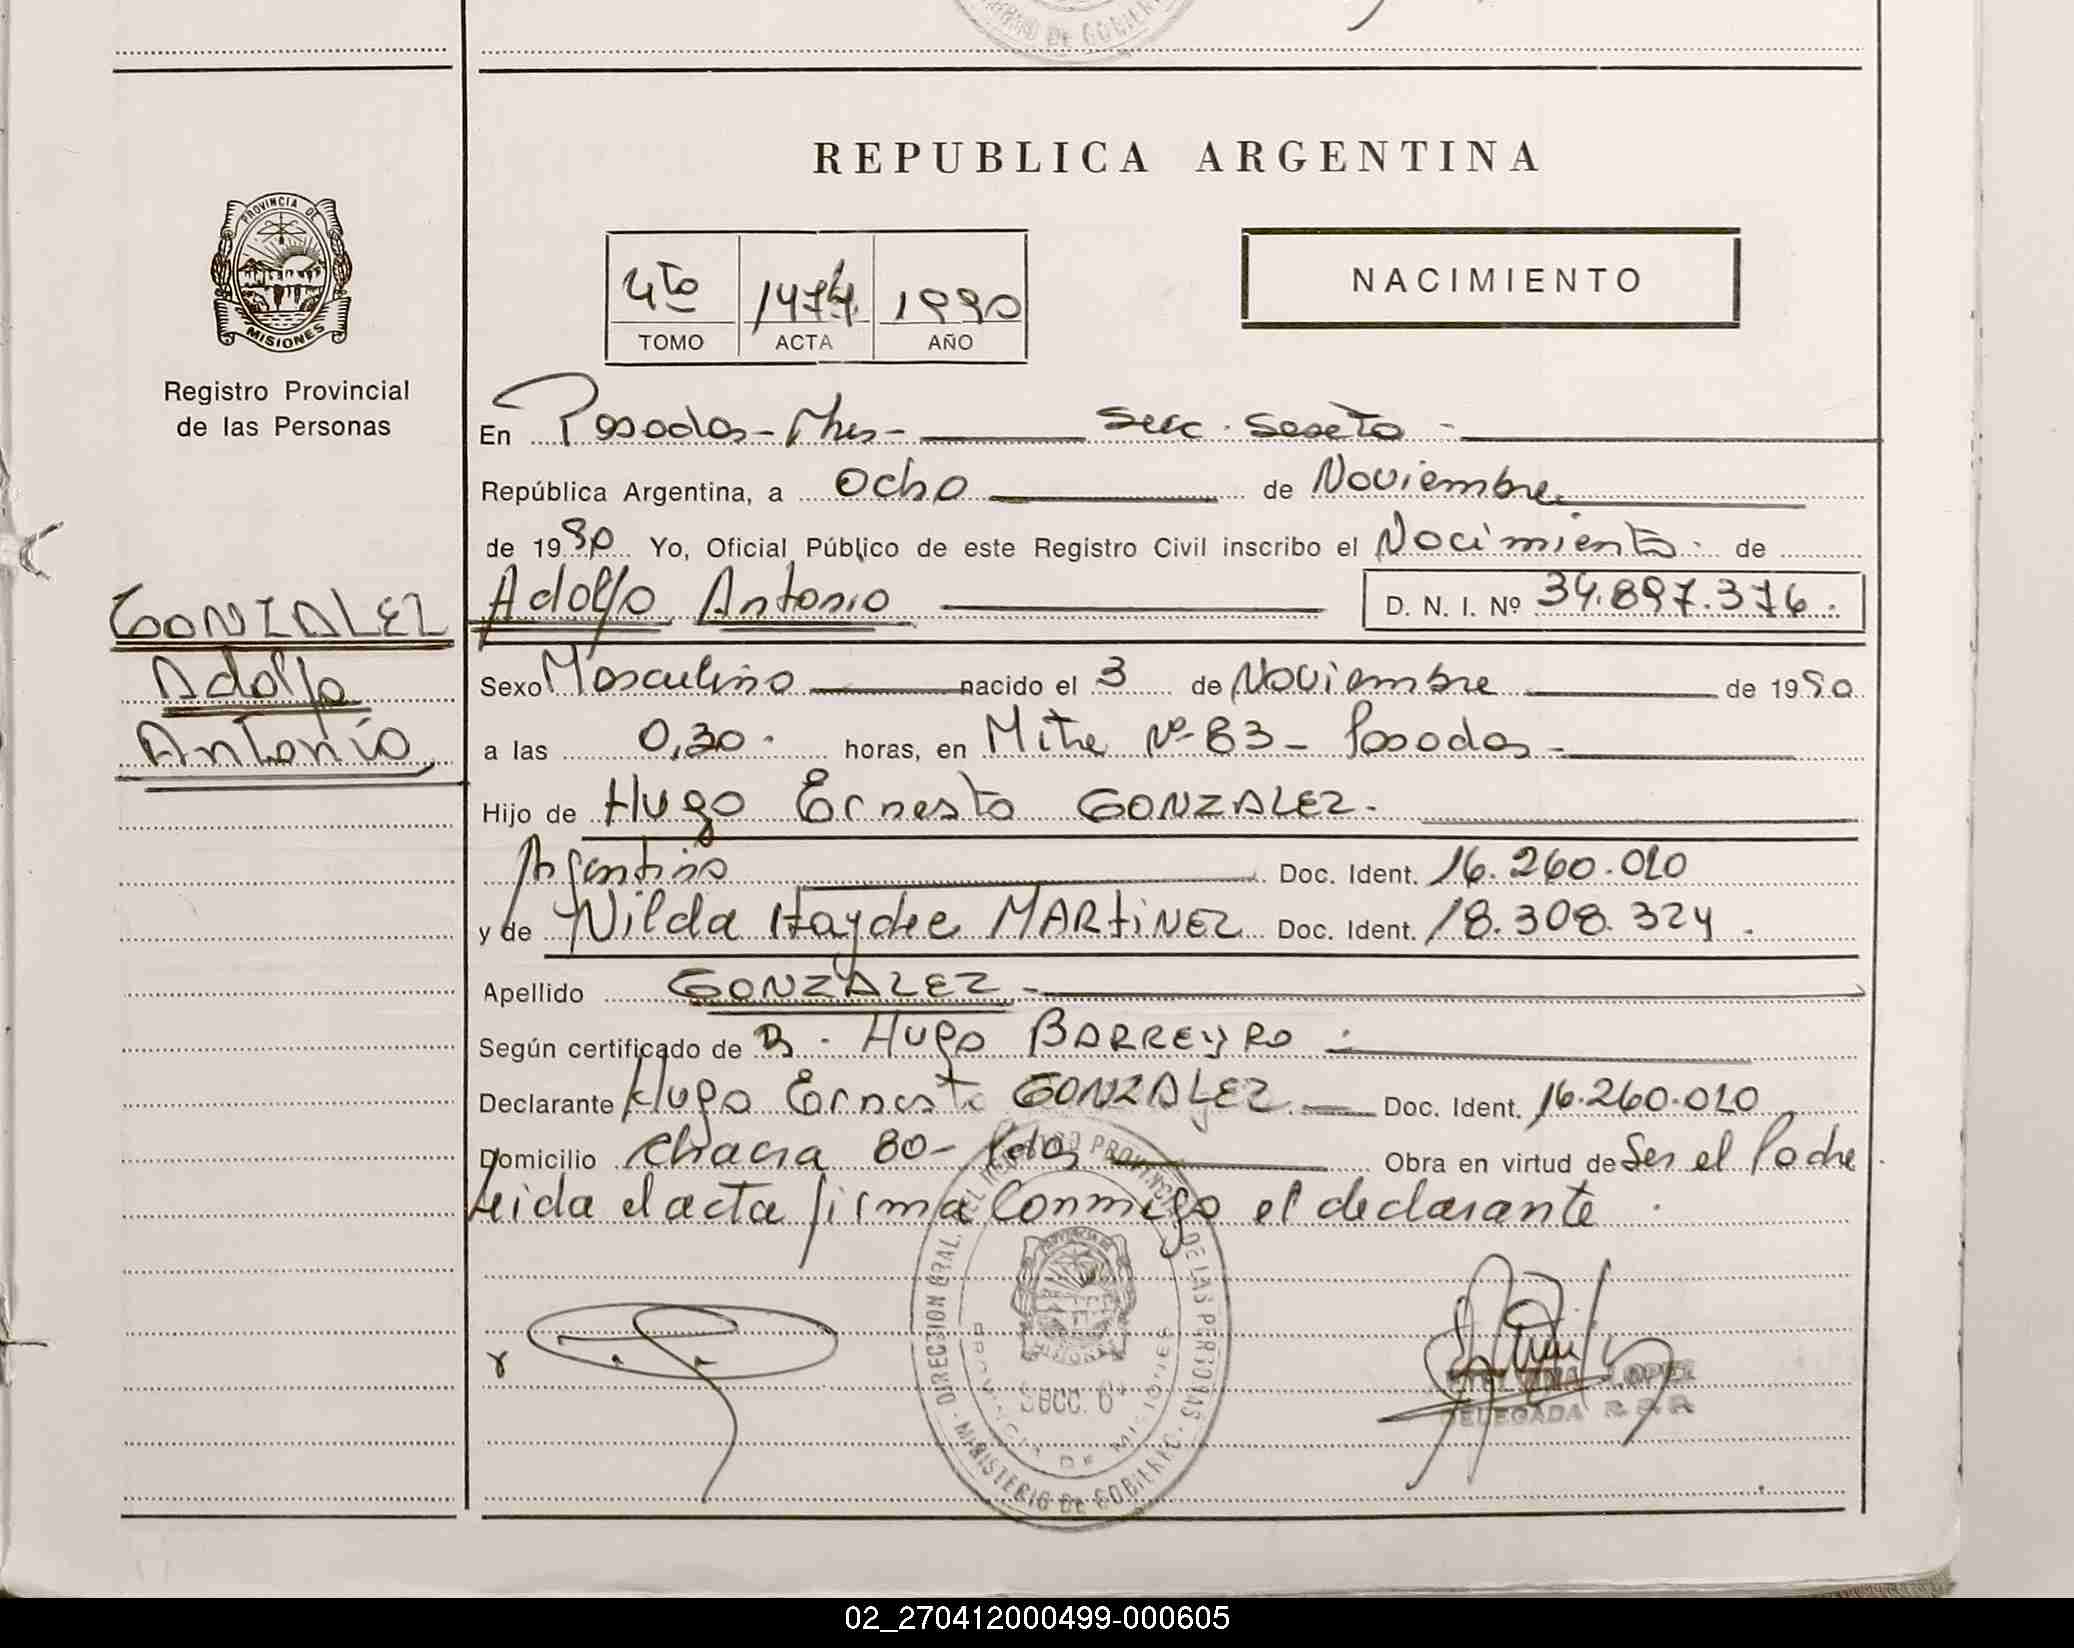 REPUBLICA ARGENTINA
PROVINCIA DE
MISIONES
Registro Provincial
de las Personas
4to 1474 1990
TOMO ACTA AÑO
NACIMIENTO
En Posadas - Mnes - Secc. Sexta -
República Argentina, a Ocho de Noviembre
de 1990 Yo, Oficial Público de este Registro Civil inscribo el Nacimiento de
GONZALEZ
Adolfo
Antonio
Adolfo Antonio D. N. I. Nº 34.897.376.
Sexo Masculino nacido el 3 de Noviembre de 1990
a las 0,30 horas, en Mitre Nº 83 - Posadas -
Hijo de Hugo Ernesto GONZALEZ.
Argentino Doc. Ident. 16.260.010
y de Nilda Haydee MARTINEZ Doc. Ident. 18.308.324.
Apellido GONZALEZ -
Según certificado de Hugo BARREYRO
Declarante Hugo Ernesto GONZALEZ Doc. Ident. 16.260.010
Domicilio Chacra 80 - Pdas Obra en virtud de Ser el Padre
Leida el acta firma Conmigo el declarante.
DIRECCION GRAL. DEL REGISTRO PROVINCIAL DE LAS PERSONAS
MINISTERIO DE GOBIERNO
SECC. 6ª
PROVINCIA DE MISIONES
LOPEZ
DELEGADA
02_270412000499-000605